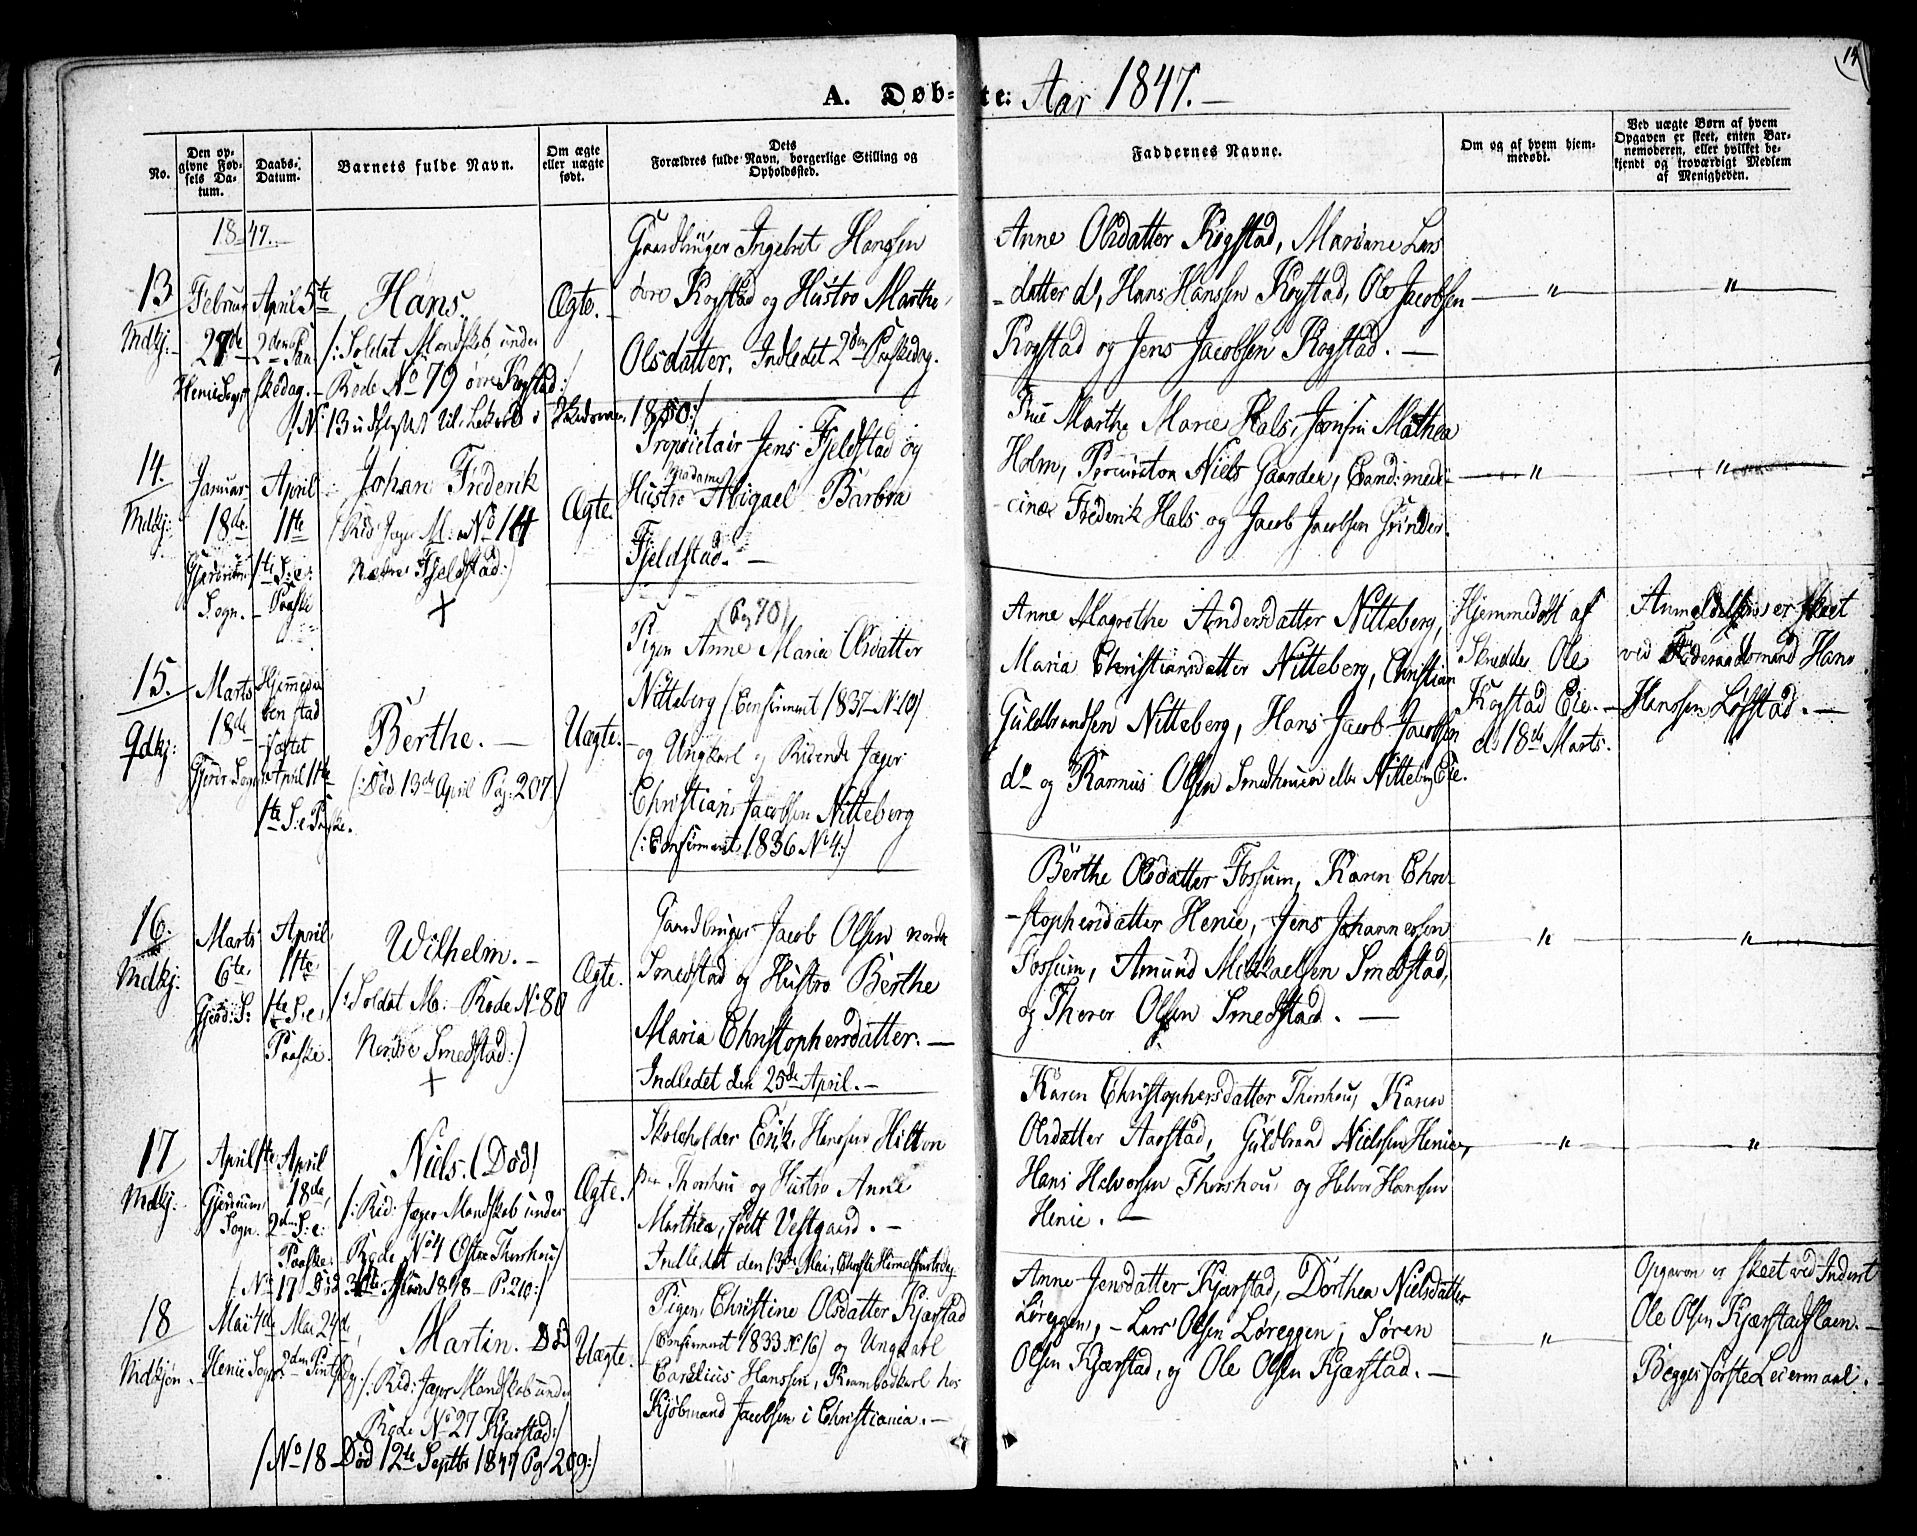 14
A. Døb-te: Aar 1847.—
No.
Den op-
givne Fød-
sels Da-
tum.
Daabs-
Datum.
Barnets fulde Navn.
Om ægte
eller uægte
født.
Dets
Forældres fulde Navn, borgerlige Stilling og
Opholdssted.
Faddernes Navne.
Om og af hvem hjem-
medøbt.
Ved uægte Børn af hvem
Opgaven er skeet, enten Bar-
nemoderen, eller hvilket be-
kjendt og troværdigt Medlem
af Menigheden.
1847.
13
Mdkj:
Februar
27de
Henie Sogn
April 5te
2den Paa-
skedag.
Hans.
/: Soldat Mandskab under
Rode No 79 øvre Kogstad:/
/No 13 udflyttet til
Ægte.
Gaardbruger Ingebret Hansen
øvre Kogstad og Hustro Marthe
Olsdatter. Indledet 2den Paaskedag.
1850:/
Anne Olsdatter Kogstad, Mariane Lars
-datter do, Hans Hanssen Kogstad, Ole Jacobsen
Kogstad og Jens Jacobsen Kogstad. —
—"—
—"—
14.
Mdkj:
Januar
18de
Gjerdrum
Sogn.
April
11te
1te S: e:
Paaske
Johan Frederik
/: Rid Jæger M: No 14
Nedre Fjeldstad:/
+
Ægte.
Proprietair Jens Fjeldstad og
Hustro Madame Abigael Barbra
Fjeldstad. —
Frue Marthe Marie Hals, Jomfru Mathea
Holm, Procurator Niels Gaarder, Cand: medi-
cinæ Frederik Hals og Jacob Jacobsen Grinder.
—"—
—"—
15.
Qdkj:
Marts
18de
Gjerdr: Sogn
Hjemmedøb-
ben stad-
fæstet
April 11te
1te S: e Paaske.
Berthe. —
(: Død 13de April Pag: 207/
Uægte.
(Pag 70)
Pigen Anne Maria Olsdatter
Nitteberg (Confirmert 1837 No 10)
og Ungkarl og Ridende Jæger
Christian Jacobsen Nitteberg
(: Confirmeret 1836 No 4:)
Anne Magrethe Andersdatter Nitteberg,
Maria Christiansdatter Nitteberg, Christian
Guldbrandsen Nitteberg, Hans Jacob Jacobsen
do og Rasmus Olsen Smedhuuen eller Nitteberg Eie.
Hjemmedøbt af
Skredder Ole
Kogstad Eie. —
d: 18de Marts.
Anmeldelsen er skeet
ved Mand Hans
Hanssen Løfstad. —
16.
Mdkj:
Marts
6te
Gjerd: S:
April
11te
1te S: e:
Paaske.
Wilhelm. —
/: Soldat M: Rode No 80
Nordre Smedstad:/
+
Ægte.
Gaardbruger Jacob Olsen nordre
Smedstad og Hustro Berthe
Maria Christophersdatter. —
Indledet den 25de April. —
Berthe Olsdatter Fossum, Karen Chri-
-stophersdatter Henie, Jens Johannessen
Fossum, Amund Mikkaelsen Smedstad,
og Thorer Olsen Smedstad. —
—"—
—"—
17
Mdkj:
April 1te
Gjerdrum
Sogn.
April
18de
2den S: e:
Paaske.
Niels. (Død)
/: Rid: Jæger Mandskab under
Rode No 4 Østre Thorshou/
/No 17 Død 1848 P: 210:/
Ægte.
Skoleholder Erik Hanssen Hilton
paa Thorshou og Hustro Anne
Marthea, født Vestgaard. —
Indledet den 13de Mai, Christi Himmelfartsdag
Karen Christophersdatter Thorshou, Karen
Olsdatter Aarstad, Guldbrand Nielssen Henie,
Hans Helvorsen Thorshou og Helvor Hanssen
Henie. —
—"—
—"—
18
Mdkjøn.
Mai 4de
Henie Sogn
Mai 24de
2den Pintsedag
Martin. Død
/: Rid: Jæger Mandskab under
Rode No 27 Kjærstad:/
/No 18 Død 12te Septbr 1847 Pag 209:/
Uægte.
Pigen Christine Olsdatter Kjærstad
(Confirmert 1833 No 16) og Ungkarl
Carelius Hanssen, Krambodkarl hos
Kjøbmand Jacobsen i Christiania. —
Anne Jensdatter Kjærstad, Dorthea Nielsdatter
Løreggen, — Lars Olsen Løreggen, Søren
Olsen Kjærstad, og Ole Olsen Kjærstad. —
—"—
Opgaven er skeet ved Inderst
Ole Olsen Kjærstadflaen. —
Begges første Leiermaal. —